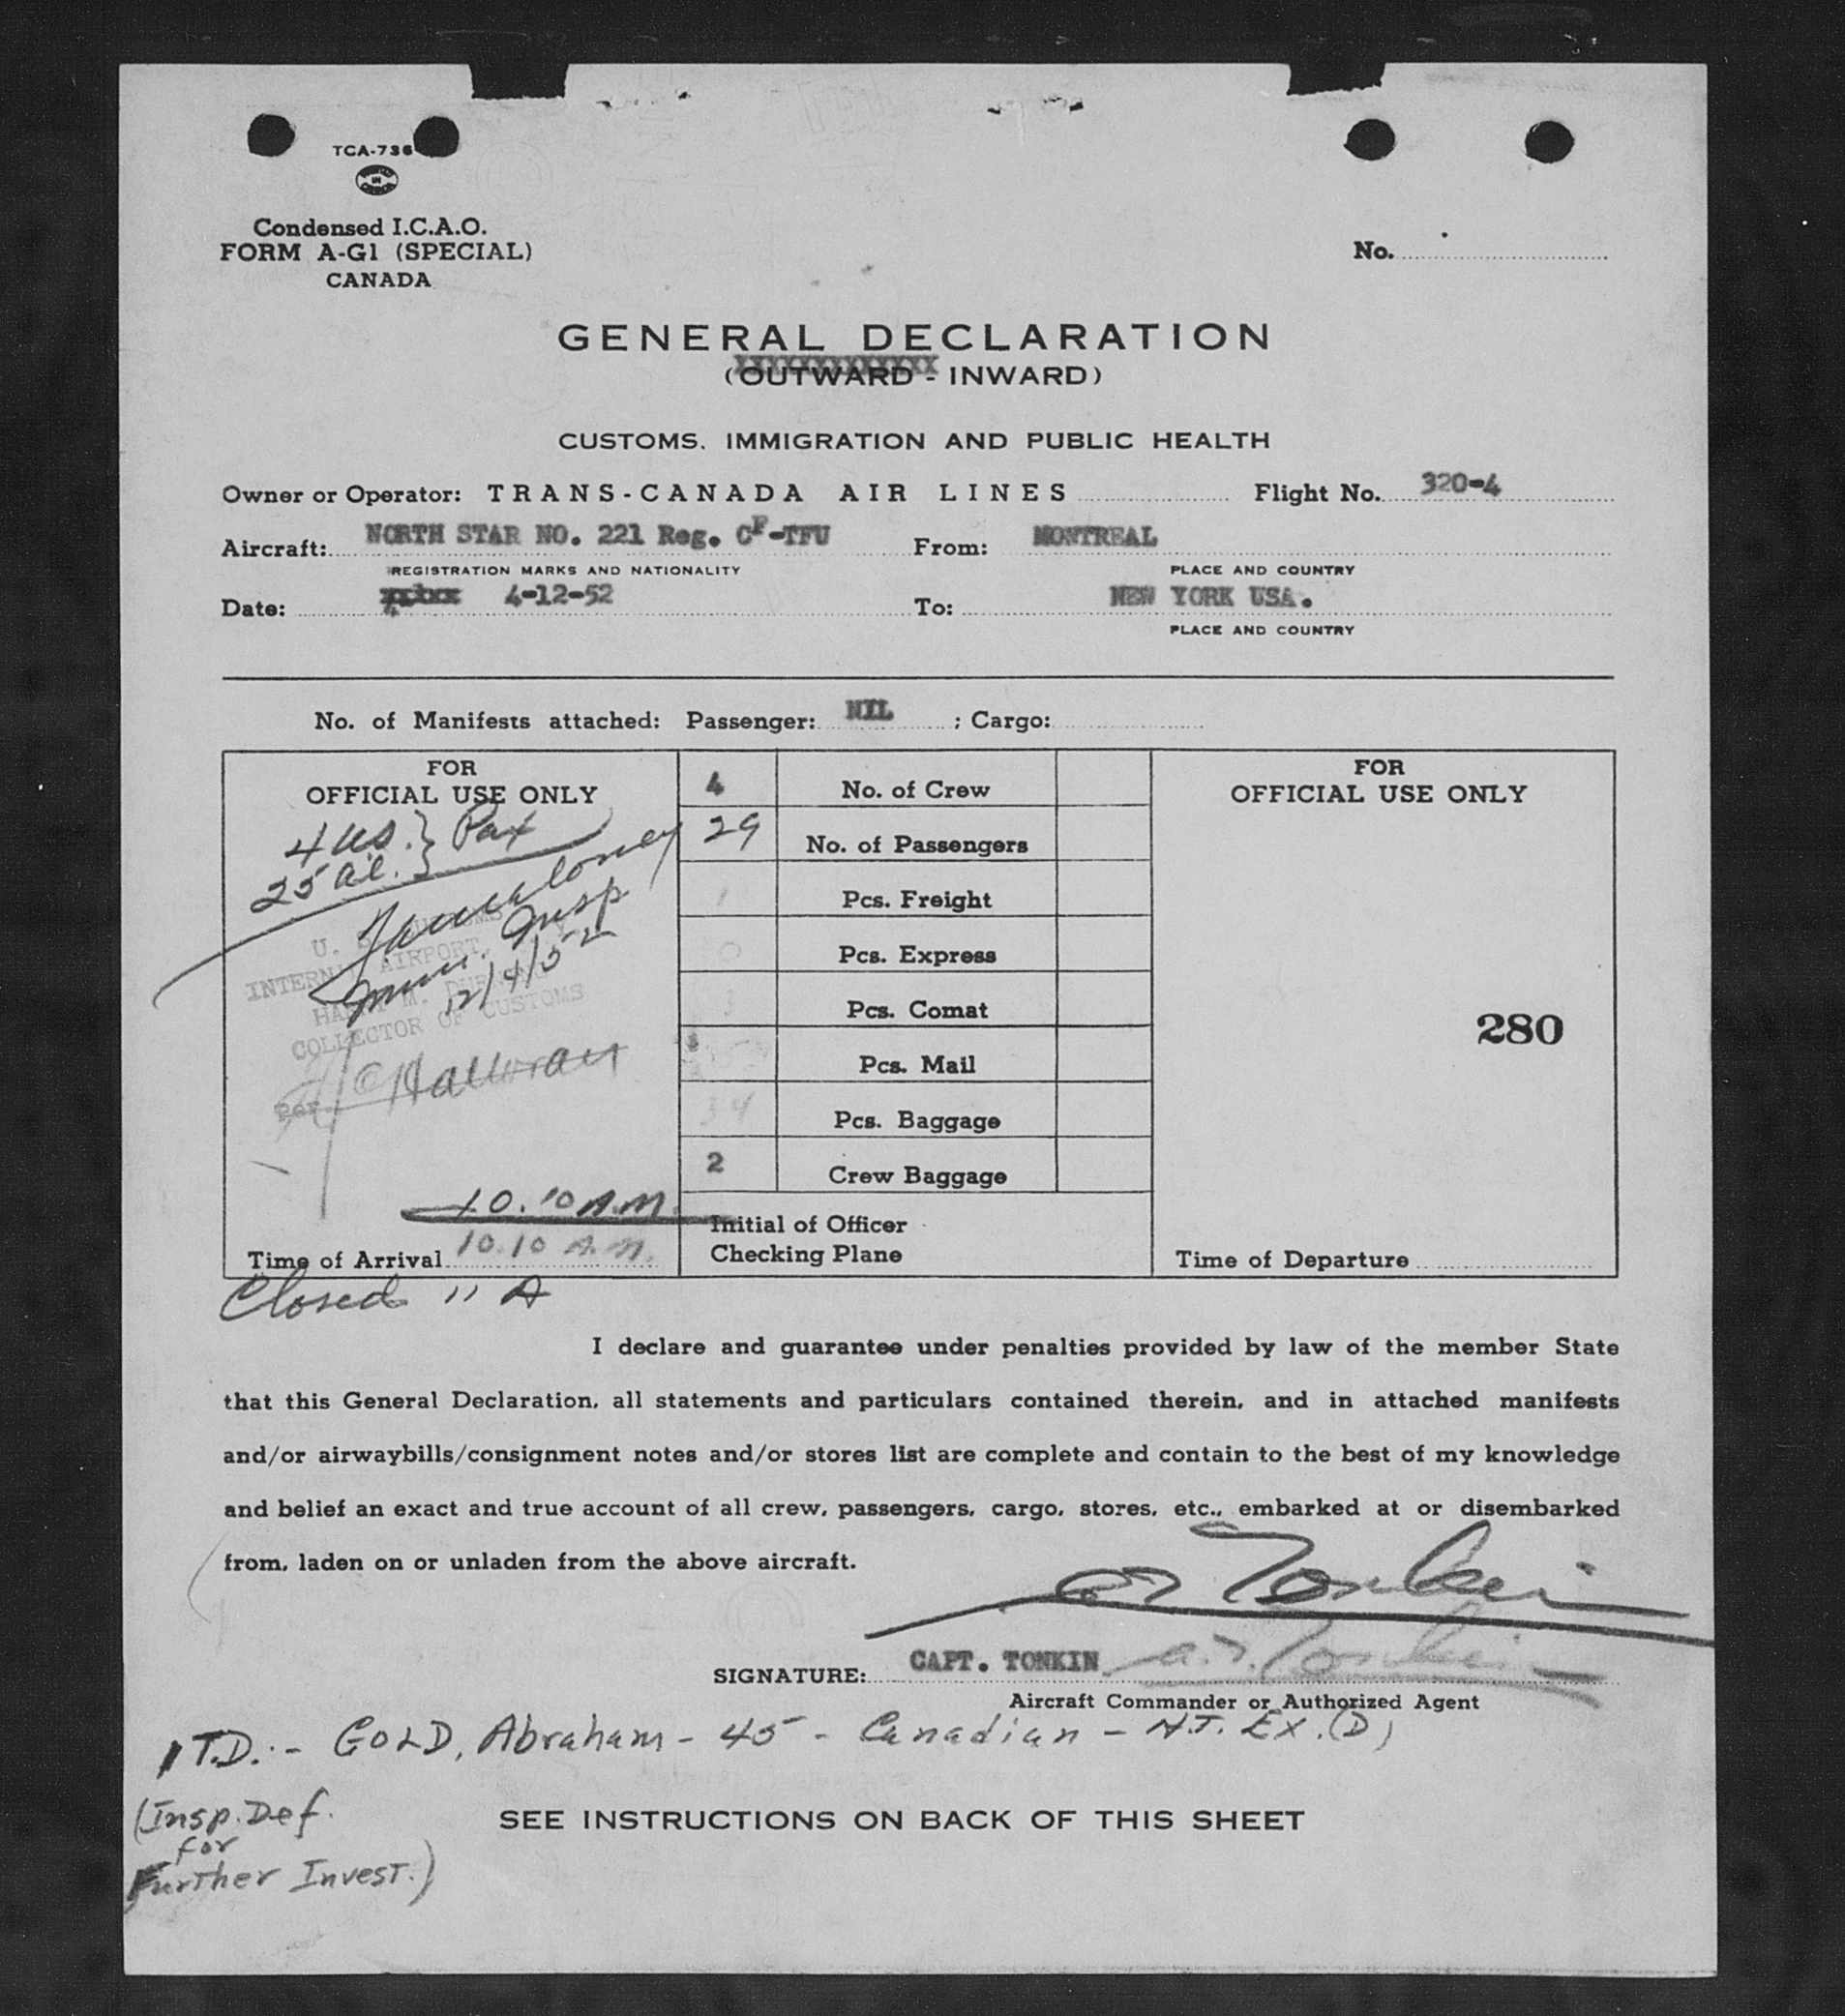 TCA-736
Condensed I.C.A.O.
FORM A-G1 (SPECIAL)
CANADA
No.
GENERAL DECLARATION
(OUTWARD - INWARD)
CUSTOMS, IMMIGRATION AND PUBLIC HEALTH
Owner or Operator: TRANS-CANADA AIR LINES Flight No. 320-4
Aircraft: NORTH STAR NO. 221 Reg. CF-TFU From: MONTREAL
REGISTRATION MARKS AND NATIONALITY PLACE AND COUNTRY
Date: 4-12-52 To: NEW YORK USA.
PLACE AND COUNTRY
No. of Manifests attached: Passenger: NIL ; Cargo:
FOR
OFFICIAL USE ONLY
4 US. } Pax
25 al. }
Imm. Insp
12/4/52
U. S. CUSTOMS
AIRPORT,
COLLECTOR OF CUSTOMS
Per
10.10 A.M.
Time of Arrival 10.10 A.M.
4 No. of Crew
29 No. of Passengers
Pcs. Freight
Pcs. Express
Pcs. Comat
Pcs. Mail
34 Pcs. Baggage
2 Crew Baggage
Initial of Officer
Checking Plane
FOR
OFFICIAL USE ONLY
280
Time of Departure
Closed 11 A
I declare and guarantee under penalties provided by law of the member State
that this General Declaration, all statements and particulars contained therein, and in attached manifests
and/or airwaybills/consignment notes and/or stores list are complete and contain to the best of my knowledge
and belief an exact and true account of all crew, passengers, cargo, stores, etc., embarked at or disembarked
from, laden on or unladen from the above aircraft.
SIGNATURE: CAPT. TONKIN
Aircraft Commander or Authorized Agent
1 T.D. - GOLD, Abraham - 45 - Canadian - H.T. EX. (D)
(Insp. Def.
for
Further Invest.)
SEE INSTRUCTIONS ON BACK OF THIS SHEET